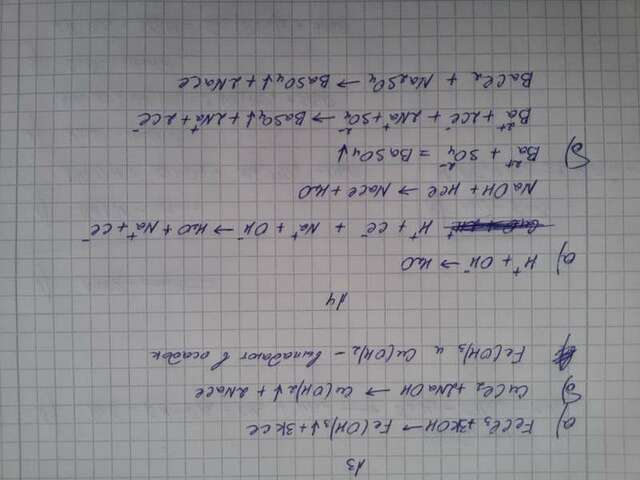 13
а) FeCl₃+3KOH → Fe(OH)₃↓+3KCl
б) CuCl₂+2NaOH → Cu(OH)₂↓ + 2NaCl
Fe(OH)₃ и Cu(OH)₂ – выпадают в осадок
14
а) H⁺ + OH⁻ → H₂O
H⁺ + Cl⁻ + Na⁺ + OH⁻ → H₂O + Na⁺ + Cl⁻
NaOH + HCl → NaCl + H₂O
б) Ba²⁺ + SO₄²⁻ = BaSO₄↓
Ba²⁺ + 2Cl⁻ + 2Na⁺ + SO₄²⁻ → BaSO₄↓ + 2Na⁺ + 2Cl⁻
BaCl₂ + Na₂SO₄ → BaSO₄↓ + 2NaCl